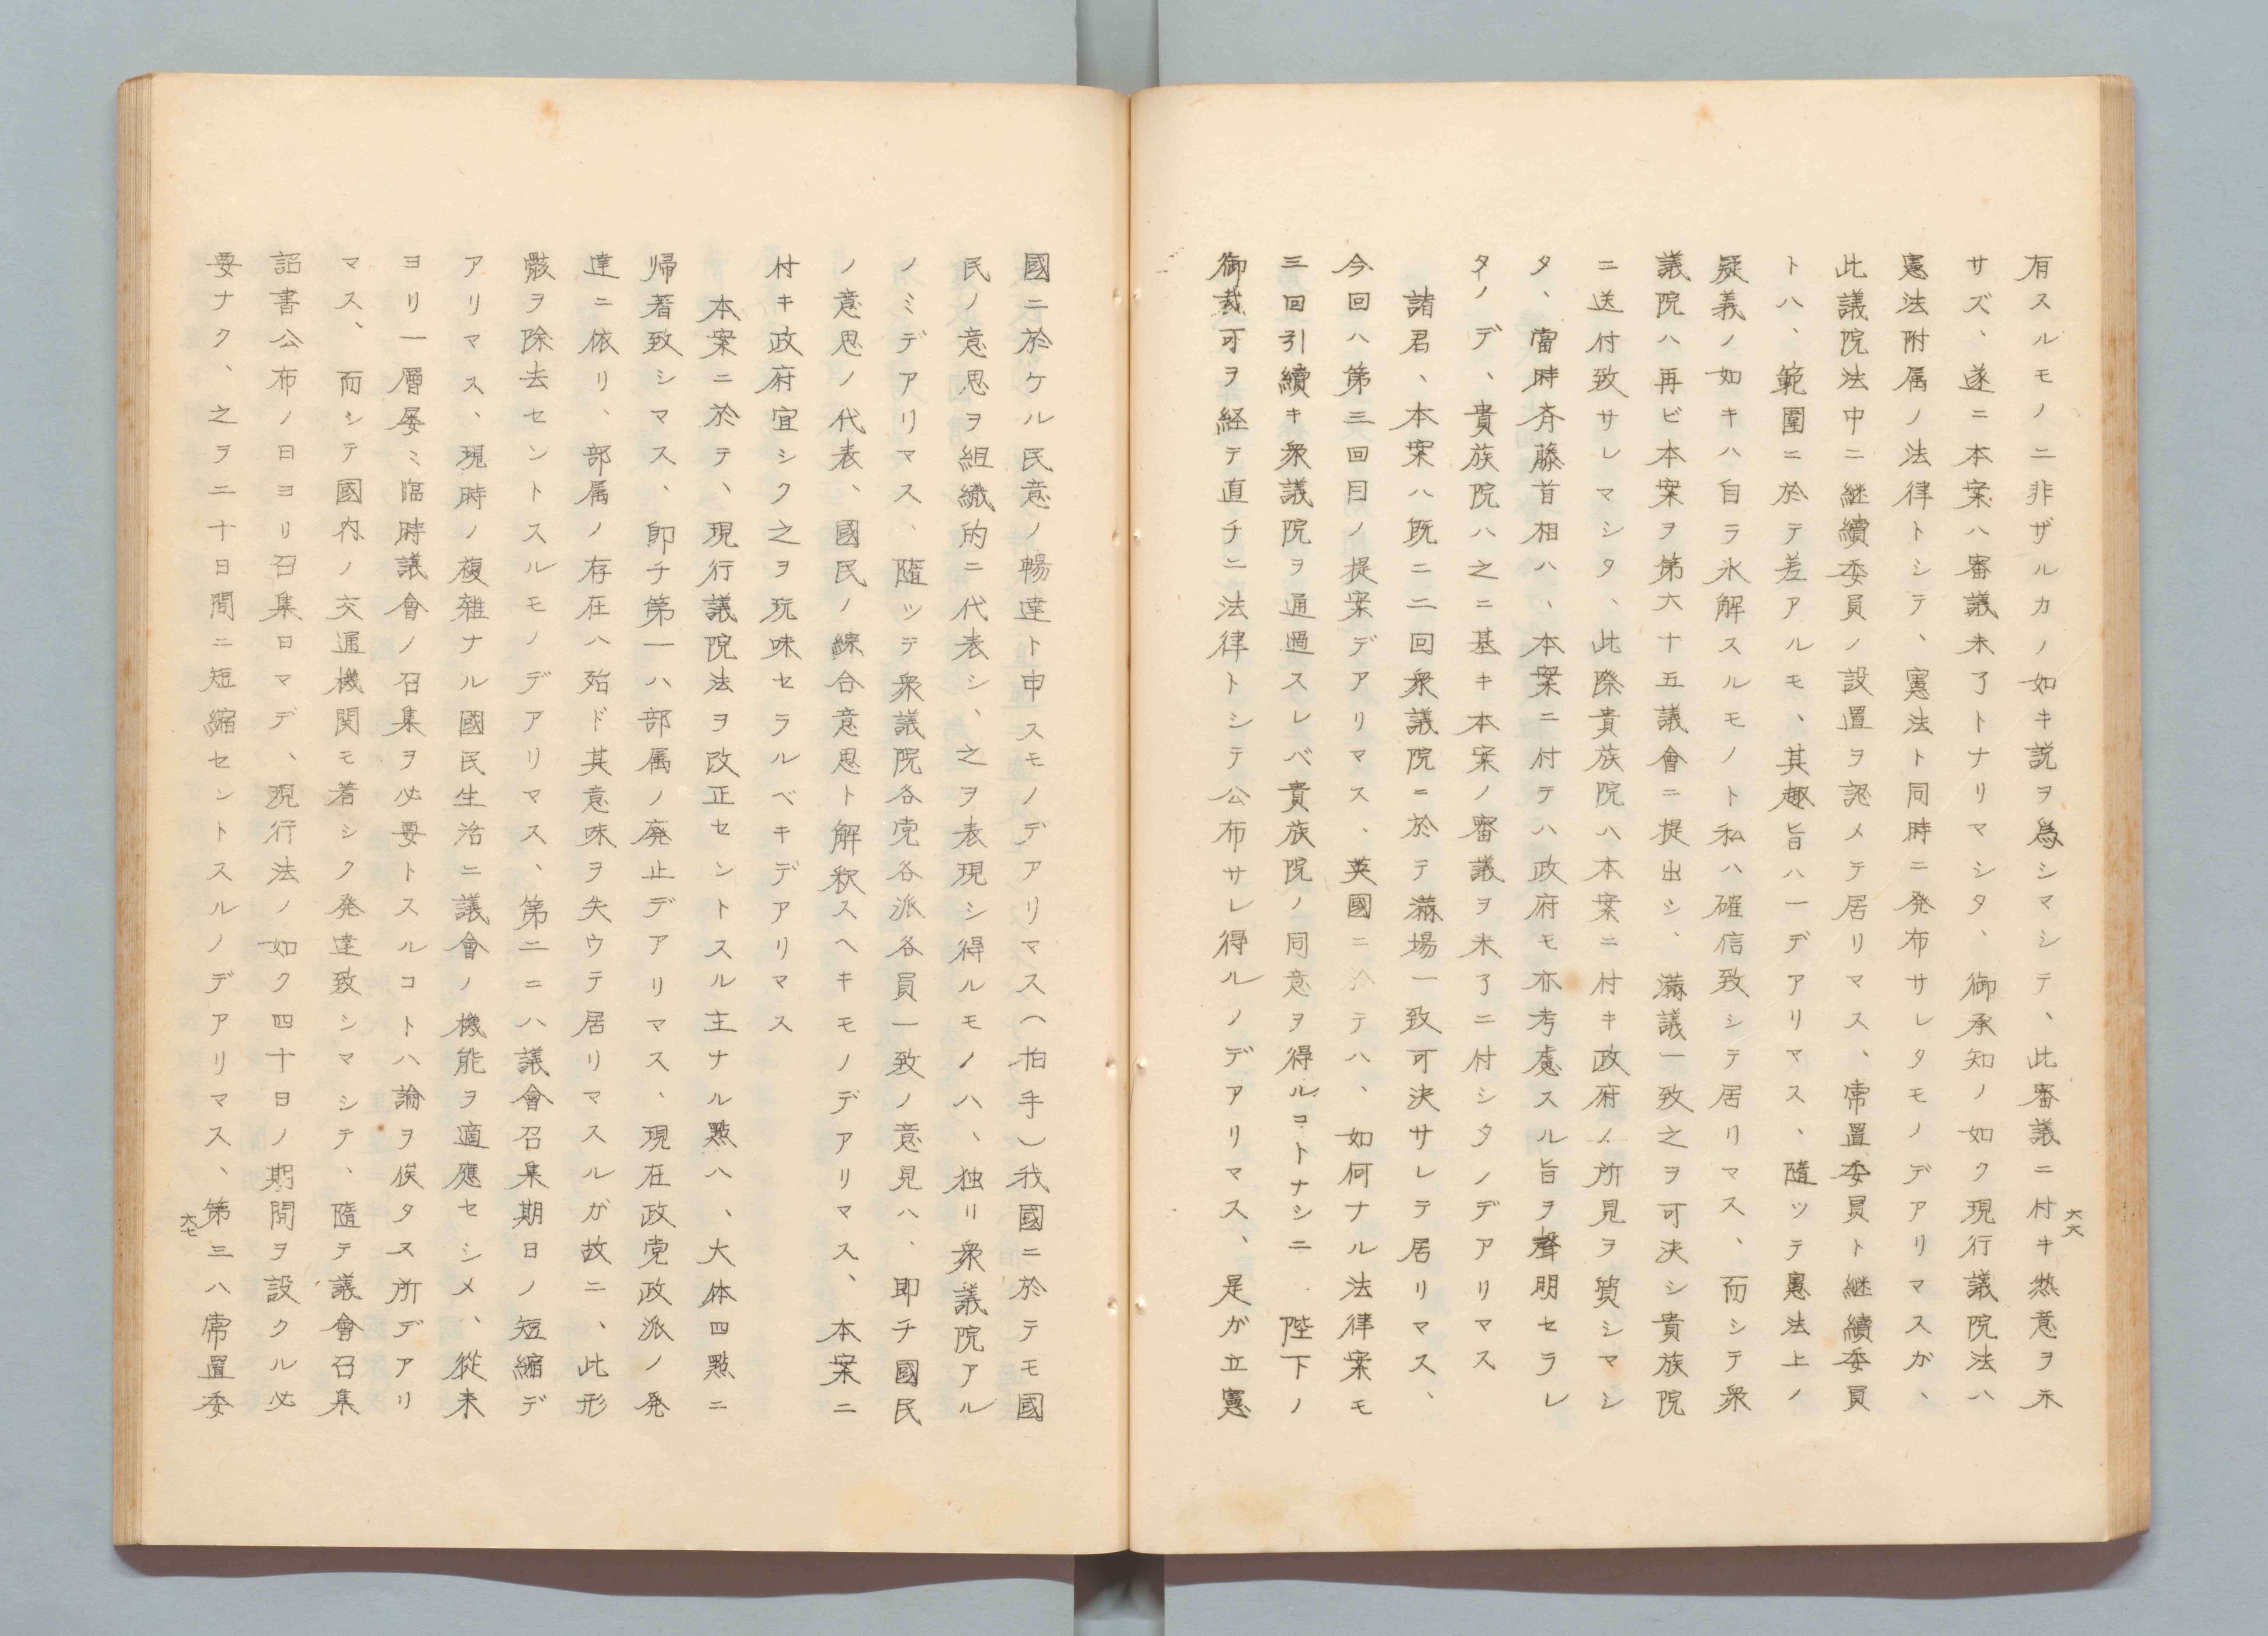 有スルモノニ非ザルカノ如キ説ヲ為シマシテ、此審議ニ付キ熱意ヲ示
サズ、遂ニ本案ハ審議未了トナリマシタ、御承知ノ如ク現行議院法ハ
憲法附属ノ法律トシテ、憲法ト同時ニ発布サレタモノデアリマスガ、
此議院法中ニ継續委員ノ設置ヲ認メテ居リマス、常置委員ト継續委員
トハ、範圍ニ於テ差アルモ、其趣旨ハ一デアリマス、隨ッテ憲法上ノ
疑義ノ如キハ自ラ氷解スルモノト私ハ確信致シテ居リマス、而シテ衆
議院ハ再ビ本案ヲ第六十五議會ニ提出シ、滿議一致之ヲ可決シ貴族院
ニ送付致サレマシタ、此際貴族院ハ本案ニ付キ政府ノ所見ヲ質シマシ
タ、當時斉藤首相ハ、本案ニ付テハ政府モ亦考慮スル旨ヲ聲明セラレ
タノデ、貴族院ハ之ニ基キ本案ノ審議ヲ未了ニ付シタノデアリマス
諸君、本案ハ既ニ二回衆議院ニ於テ滿場一致可決サレテ居リマス、
今回ハ第三回目ノ提案デアリマス、英國ニ於テハ、如何ナル法律案モ
三回引續キ衆議院ヲ通過スレバ貴族院ノ同意ヲ得ルコトナシニ 陛下ノ
御裁可ヲ経テ直チニ法律トシテ公布サレ得ルノデアリマス、是ガ立憲
六六
國ニ於ケル民意ノ暢達ト申スモノデアリマス（拍手）我國ニ於テモ國
民ノ意思ヲ組織的ニ代表シ、之ヲ表現シ得ルモノハ、独リ衆議院アル
ノミデアリマス、隨ッテ衆議院各党各派各員一致ノ意見ハ、即チ國民
ノ意思ノ代表、國民ノ綜合意思ト解釈スヘキモノデアリマス、本案ニ
付キ政府宜シク之ヲ玩味セラルベキデアリマス
本案ニ於テ、現行議院法ヲ改正セントスル主ナル點ハ、大体四點ニ
帰着致シマス、即チ第一ハ部属ノ廃止デアリマス、現在政党政派ノ発
達ニ依リ、部属ノ存在ハ殆ド其意味ヲ失ウテ居リマスルガ故ニ、此形
骸ヲ除去セントスルモノデアリマス、第二ニハ議會召集期日ノ短縮デ
アリマス、現時ノ複雑ナル國民生活ニ議會ノ機能ヲ適應セシメ、從来
ヨリ一層屡ミ臨時議會ノ召集ヲ必要トスルコトハ論ヲ俟タヌ所デアリ
マス、而シテ國内ノ交通機関モ著シク発達致シマシテ、隨テ議會召集
詔書公布ノ日ヨリ召集日マデ、現行法ノ如ク四十日ノ期間ヲ設クル必
要ナク、之ヲ二十日間ニ短縮セントスルノデアリマス、第三ハ常置委
六七